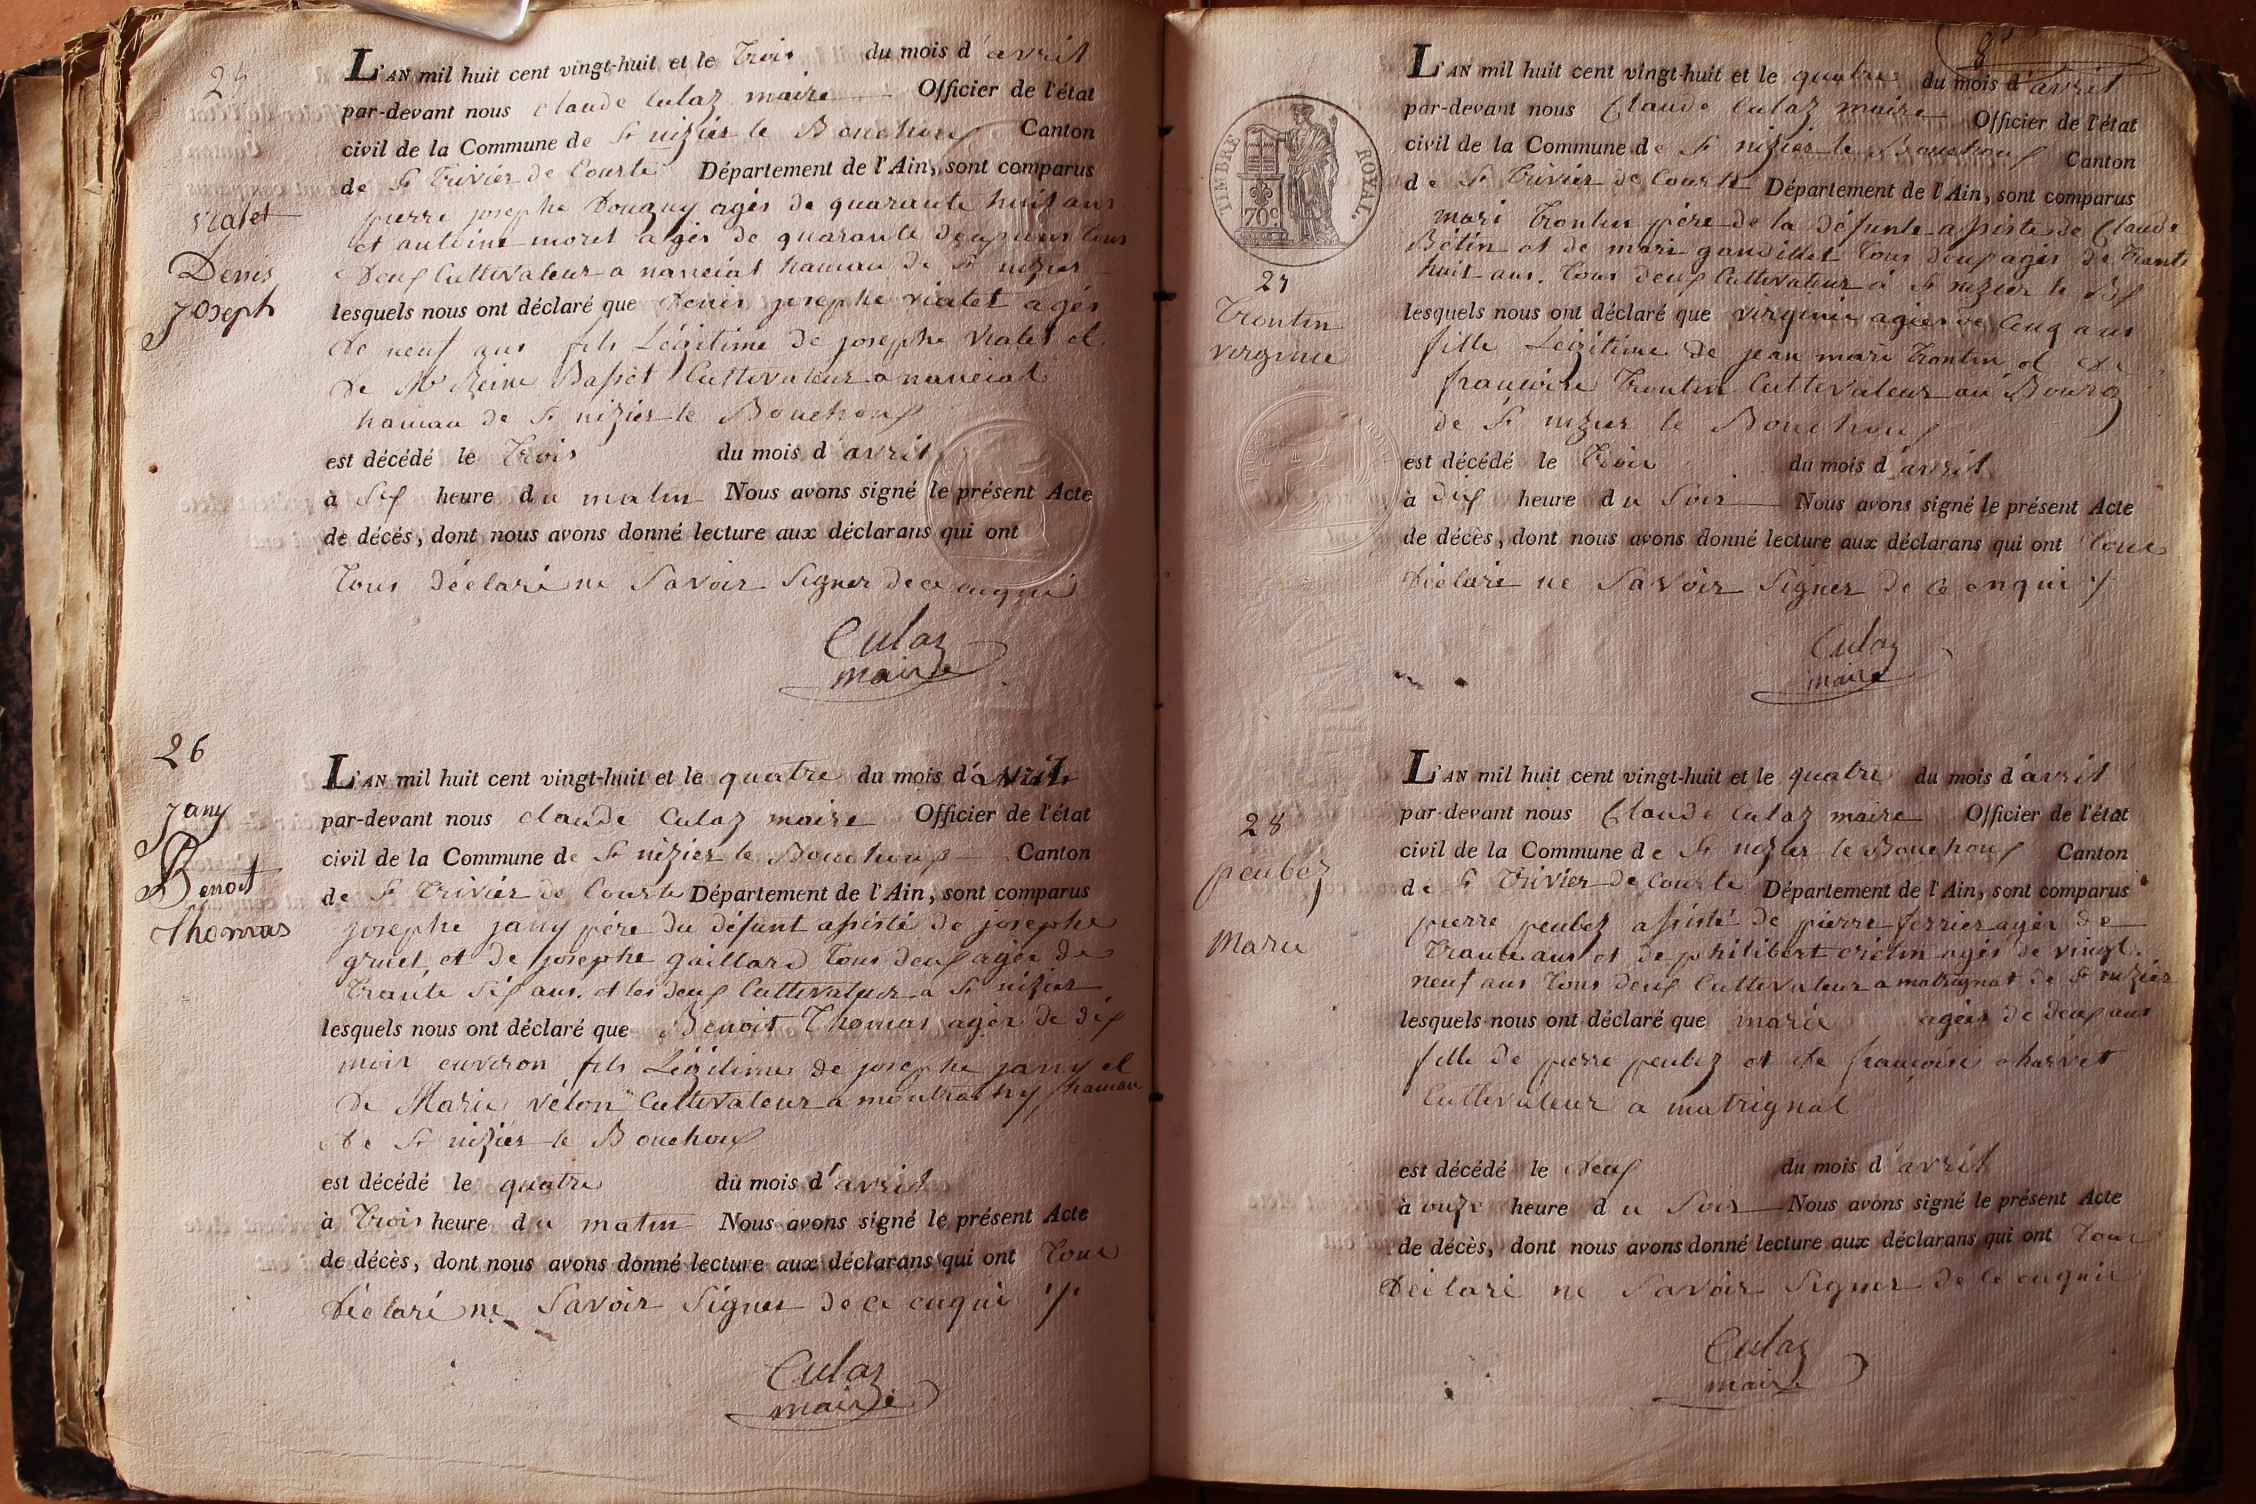 25
L'AN mil huit cent vingt-huit et le trois du mois d'avril
par-devant nous claude Culaz maire Officier de l'état
civil de la Commune de St nizier le Bouchoux Canton
de St Trivier de Courte Département de l'Ain, sont comparus
pierre josephe Douguy agés de quarante huit ans
et antoine moret agés de quarante deux ans tous
deux Cultivateur a nanciat hamau de St nizier
lesquels nous ont déclaré que denis josephe vialet agés
de neuf ans fils Légitime de josephe vialet et
de Me Reine Basset Cultivateur a nanciat
hamau de St nizier le Bouchoux
est décédé le trois du mois d'avril
à six heure du matin Nous avons signé le présent Acte
de décès, dont nous avons donné lecture aux déclarans qui ont
tous déclaré ne Savoir Signer de ce enquis
Culaz
maire
vialet
Denis
joseph
26
jany
Benoit
Thomas
L'AN mil huit cent vingt-huit et le quatre du mois d'avril
par-devant nous claude Culaz maire Officier de l'état
civil de la Commune de St nizier le Bouchoux Canton
de St Trivier de Courte Département de l'Ain, sont comparus
josephe jany pére du défunt assisté de josephe
gruet et de josephe gaillard tous deux agés de
trante six ans. et les deux Cultivateur a St nizier
lesquels nous ont déclaré que Benoit Thomas agés de dix
mois environ fils Légitime de josephe jany et
de Marie vélon Cultivateur a montrachy hamau
de St nizier le Bouchoux
est décédé le quatre du mois d'avril
à trois heure du matin Nous avons signé le présent Acte
de décès, dont nous avons donné lecture aux déclarans qui ont tous
déclaré ne Savoir Signer de ce enquis
Culaz
maire
TIMBRE ROYAL.
70c
27
trontin
virginie
L'AN mil huit cent vingt-huit et le quatre du mois d'avril
par-devant nous Claude Culaz maire Officier de l'état
civil de la Commune de St nizier le Bouchoux Canton
de St Trivier de Courte Département de l'Ain, sont comparus
mari trontin pére de la défunte assiste de Claude
Bétin et de mari gandillet tous deux agés de trante
huit ans. tous deux Cultivateur á St nizier le Bx
lesquels nous ont déclaré que virginie agies de Cinq ans
fille Légitime de jean mari trontin et de
francoise trontin Cultivateur au Bourg
de St nizier le Bouchoux
est décédé le trois du mois d'avril
à dix heure du Soir Nous avons signé le présent Acte
de décès, dont nous avons donné lecture aux déclarans qui ont tous
déclaré ne Savoir Signer de ce enquis
Culaz
maire
28
peubez
Marie
L'AN mil huit cent vingt-huit et le quatre du mois d'avril
par-devant nous Claude Culaz maire Officier de l'état
civil de la Commune de St nizier le Bouchoux Canton
de St Trivier de Courte Département de l'Ain, sont comparus
pierre peubez assisté de pierre ferrier agés de
trante ans et de philibert crétin agés de vingt
neuf ans tous deux Cultivateur a matrignat de St nizier
lesquels nous ont déclaré que marie agées de deux ans
fille de pierre peubez et de francoise charvet
Cultivateur a matrignat
est décédé le deux du mois d'avril
à onze heure du Soir Nous avons signé le présent Acte
de décès, dont nous avons donné lecture aux déclarans qui ont tous
déclaré ne Savoir Signer de ce enquis
Culaz
maire